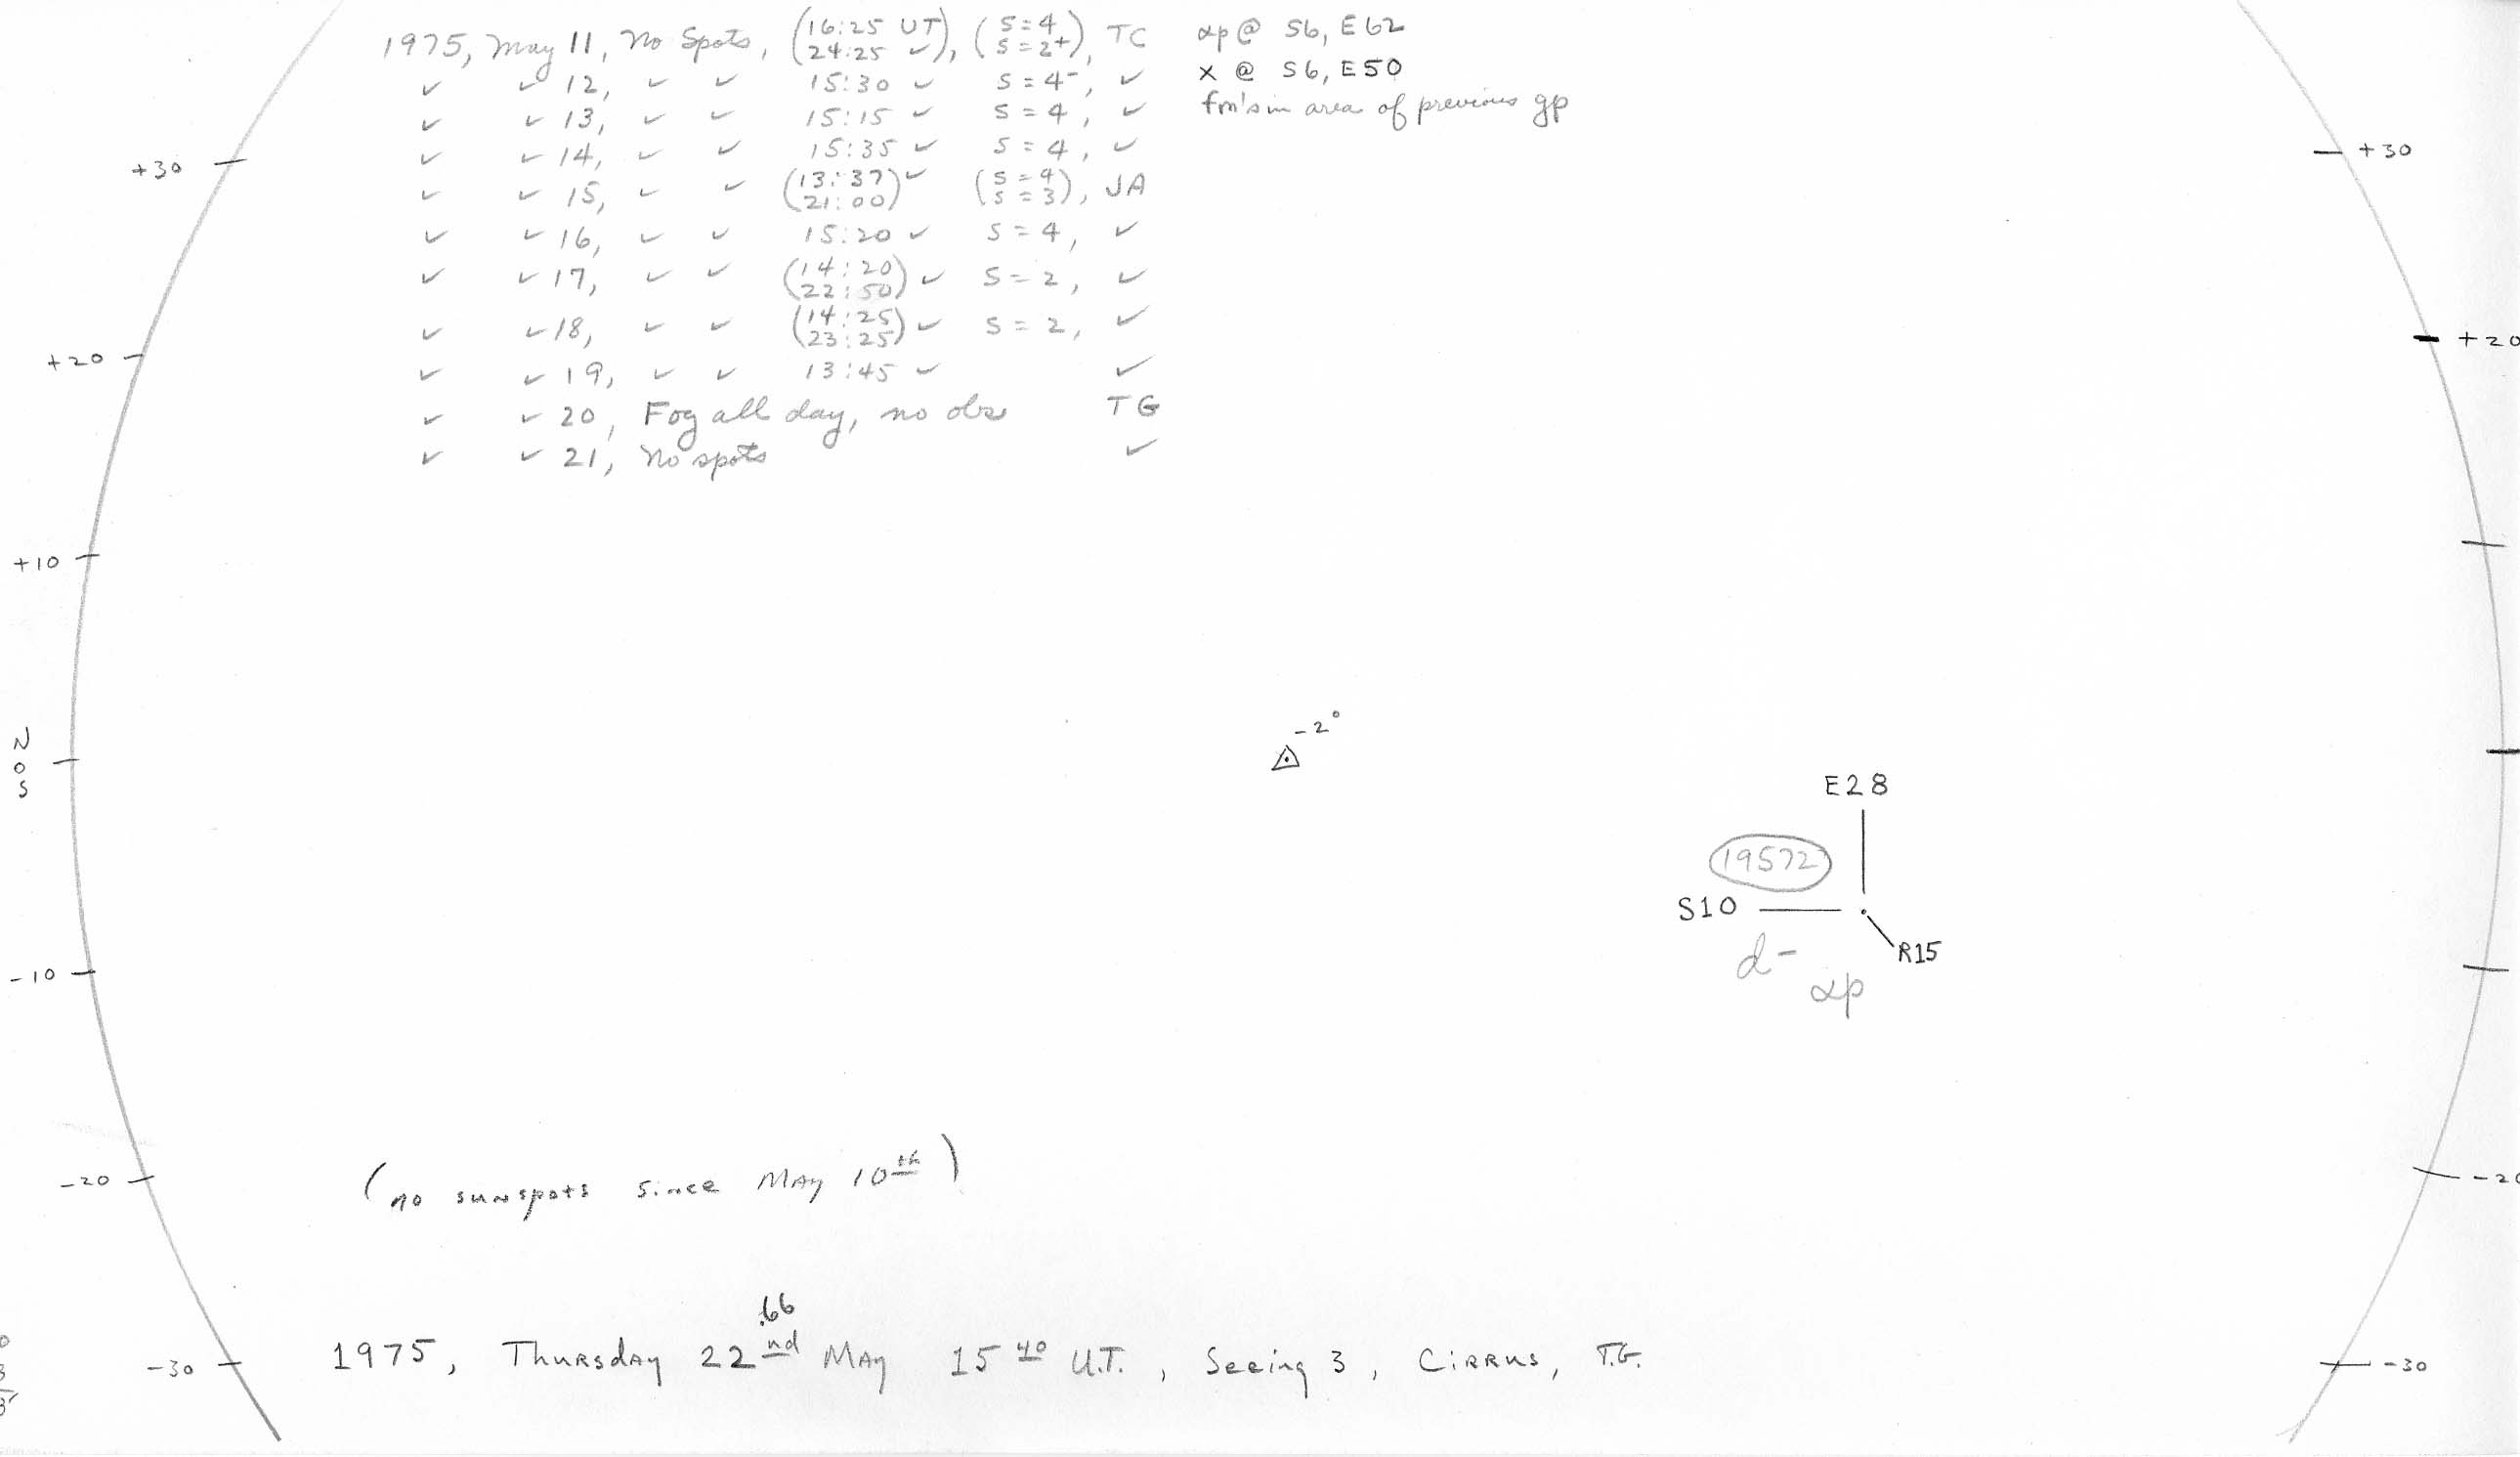 1975, May 11, No Spots, (16:25 UT), (S=4), TC αp @ S6, E62
(24:25 ✓), (S=2+),
✓ ✓ 12, ✓ ✓ 15:30 ✓ S=4-, ✓ x @ S6, E50
✓ ✓ 13, ✓ ✓ 15:15 ✓ S=4, ✓ fm's in area of previous gp
✓ ✓ 14, ✓ ✓ 15:35 ✓ S=4, ✓
✓ ✓ 15, ✓ ✓ (13:37) ✓ (S=4), JA
(21:00) (S=3),
✓ ✓ 16, ✓ ✓ 15:20 ✓ S=4, ✓
✓ ✓ 17, ✓ ✓ (14:20) ✓ S=2, ✓
(22:50)
✓ ✓ 18, ✓ ✓ (14:25) ✓ S=2, ✓
(23:25)
✓ ✓ 19, ✓ ✓ 13:45 ✓ ✓
✓ ✓ 20, Fog all day, no obs TG
✓ ✓ 21, No spots ✓
+30 +30
+20 +20
+10
N
0
S
-2°
E28
19572
S10
R15
d-
αp
-10
-20 -20
(no sunspots since May 10th)
.66
-30 1975, Thursday 22nd May 15 40 U.T., Seeing 3, Cirrus, T.G. -30